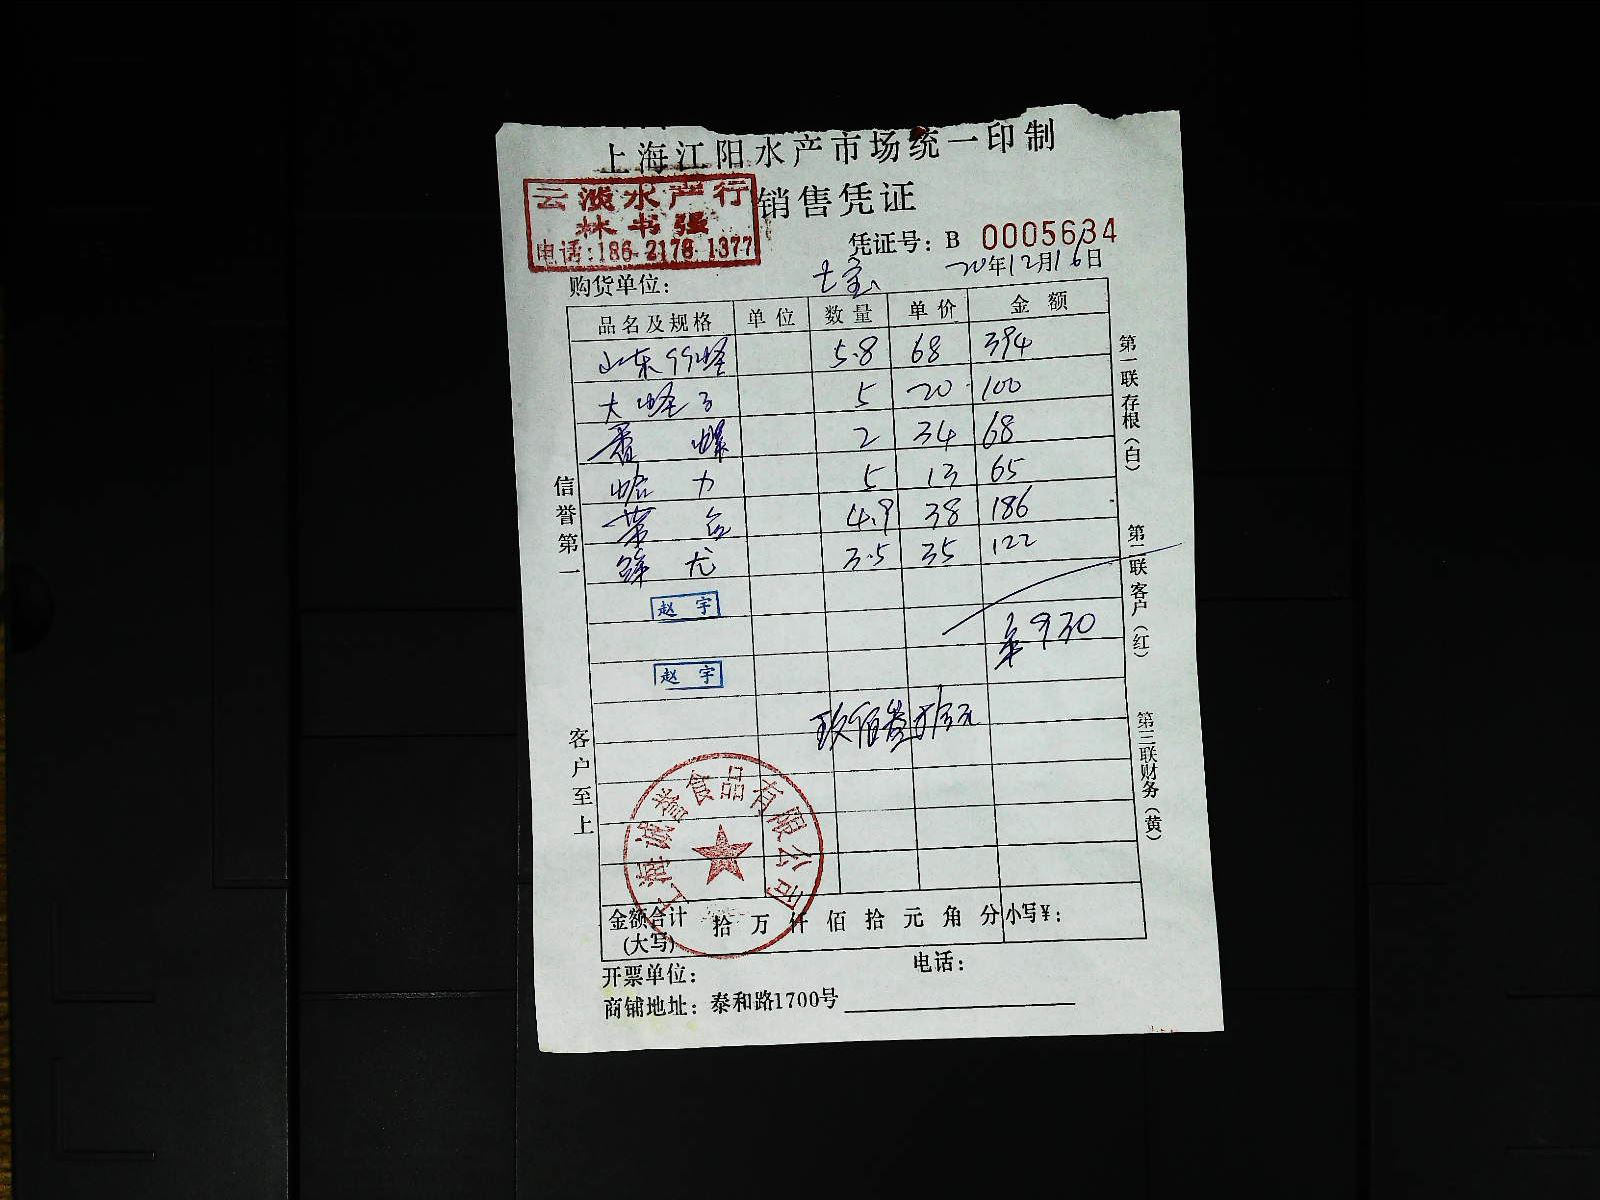 上海江阳水产市场统一印制
云淡水产行
林书强
电话:186-2178-1377
销售凭证
凭证号: B 0005634
20年12月16日
购货单位: 七宝
品名及规格 单位 数量 单价 金额
山东99蛏 5.8 68 394
大蛏子 5 20 100
香螺 2 34 68
蛤力 5 13 65
4.9 38 186
3.5 35 122
赵宇
¥930
赵宇
玖佰叁拾元
上海诚誉食品有限公司
金额合计(大写) 拾 万 仟 佰 拾 元 角 分 小写¥:
开票单位: 电话:
商铺地址: 泰和路1700号
信誉第一
客户至上
第一联存根(白)
第二联客户(红)
第三联财务(黄)